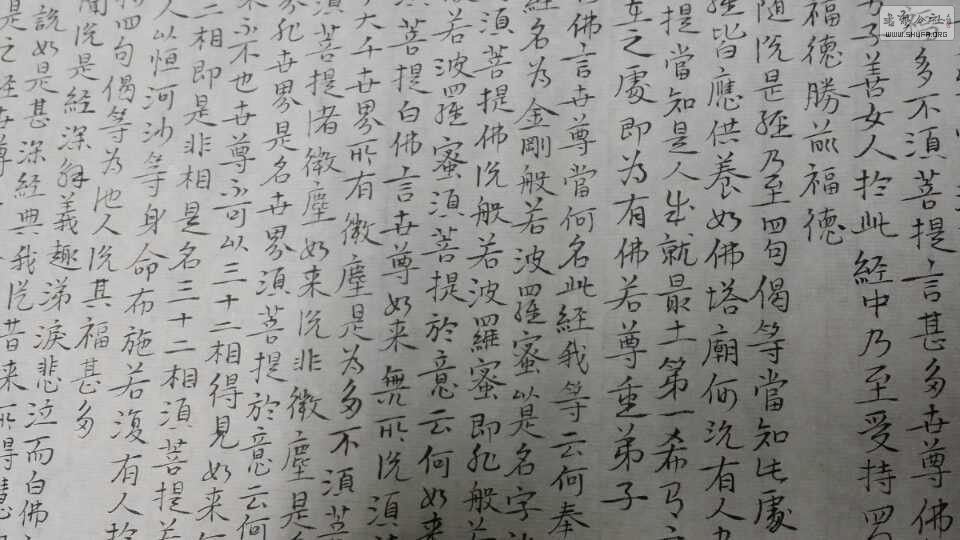 多不須菩提言甚多世尊佛
子善女人於此經中乃至受持四
福德勝前福德
隨說是經乃至四句偈等當知此處
皆應供養如佛塔廟何況有人
提當知是人成就最上第一希有
在之處即為有佛若尊重弟子
佛言世尊當何名此經我等云何奉
經名為金剛般若波羅蜜以是名字
須菩提佛說般若波羅蜜即非般若
若波羅蜜須菩提於意云何如来
須菩提白佛言世尊如来無所說須
大千世界所有微塵是為多不須菩
須菩提諸微塵如来說非微塵是
非世界是名世界須菩提於意云何
来不不也世尊不可以三十二相得見如来
二相即是非相是名三十二相須菩提若
人以恒河沙等身命布施若復有人於
四句偈等為他人說其福甚多
聞說是經深解義趣涕淚悲泣而白佛
說如是甚深經典我從昔来所得慧
是之經世尊
www.SHUFA.com